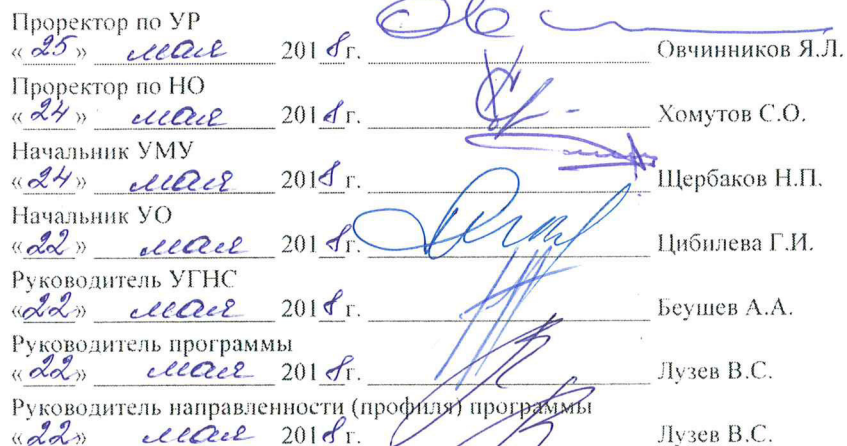 Проректор по УР
«25» мая 2018 г. Овчинников Я.Л.
Проректор по НО
«24» мая 2018 г. Хомутов С.О.
Начальник УМУ
«24» мая 2018 г. Щербаков Н.П.
Начальник УО
«22» мая 2018 г. Цибилева Г.И.
Руководитель УГНС
«22» мая 2018 г. Беушев А.А.
Руководитель программы
«22» мая 2018 г. Лузев В.С.
Руководитель направленности (профиля) программы
«22» мая 2018 г. Лузев В.С.